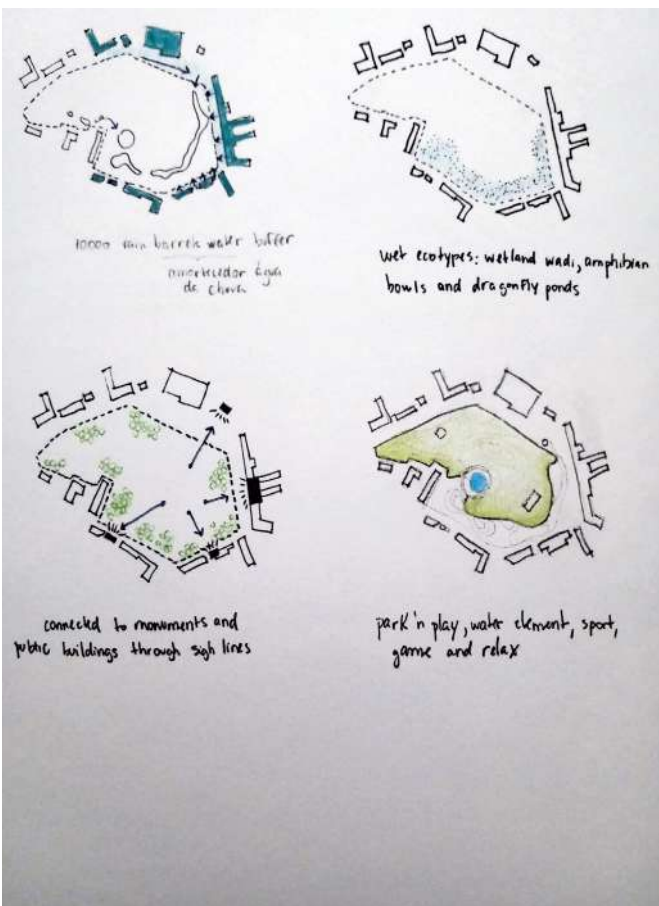 10000 rain barrels water buffer
amortecedor água
de chuva
wet ecotypes: wetland wadi, amphibian
bowls and dragonfly ponds
connected to monuments and
public buildings through sigh lines
park'n play, water element, sport,
game and relax